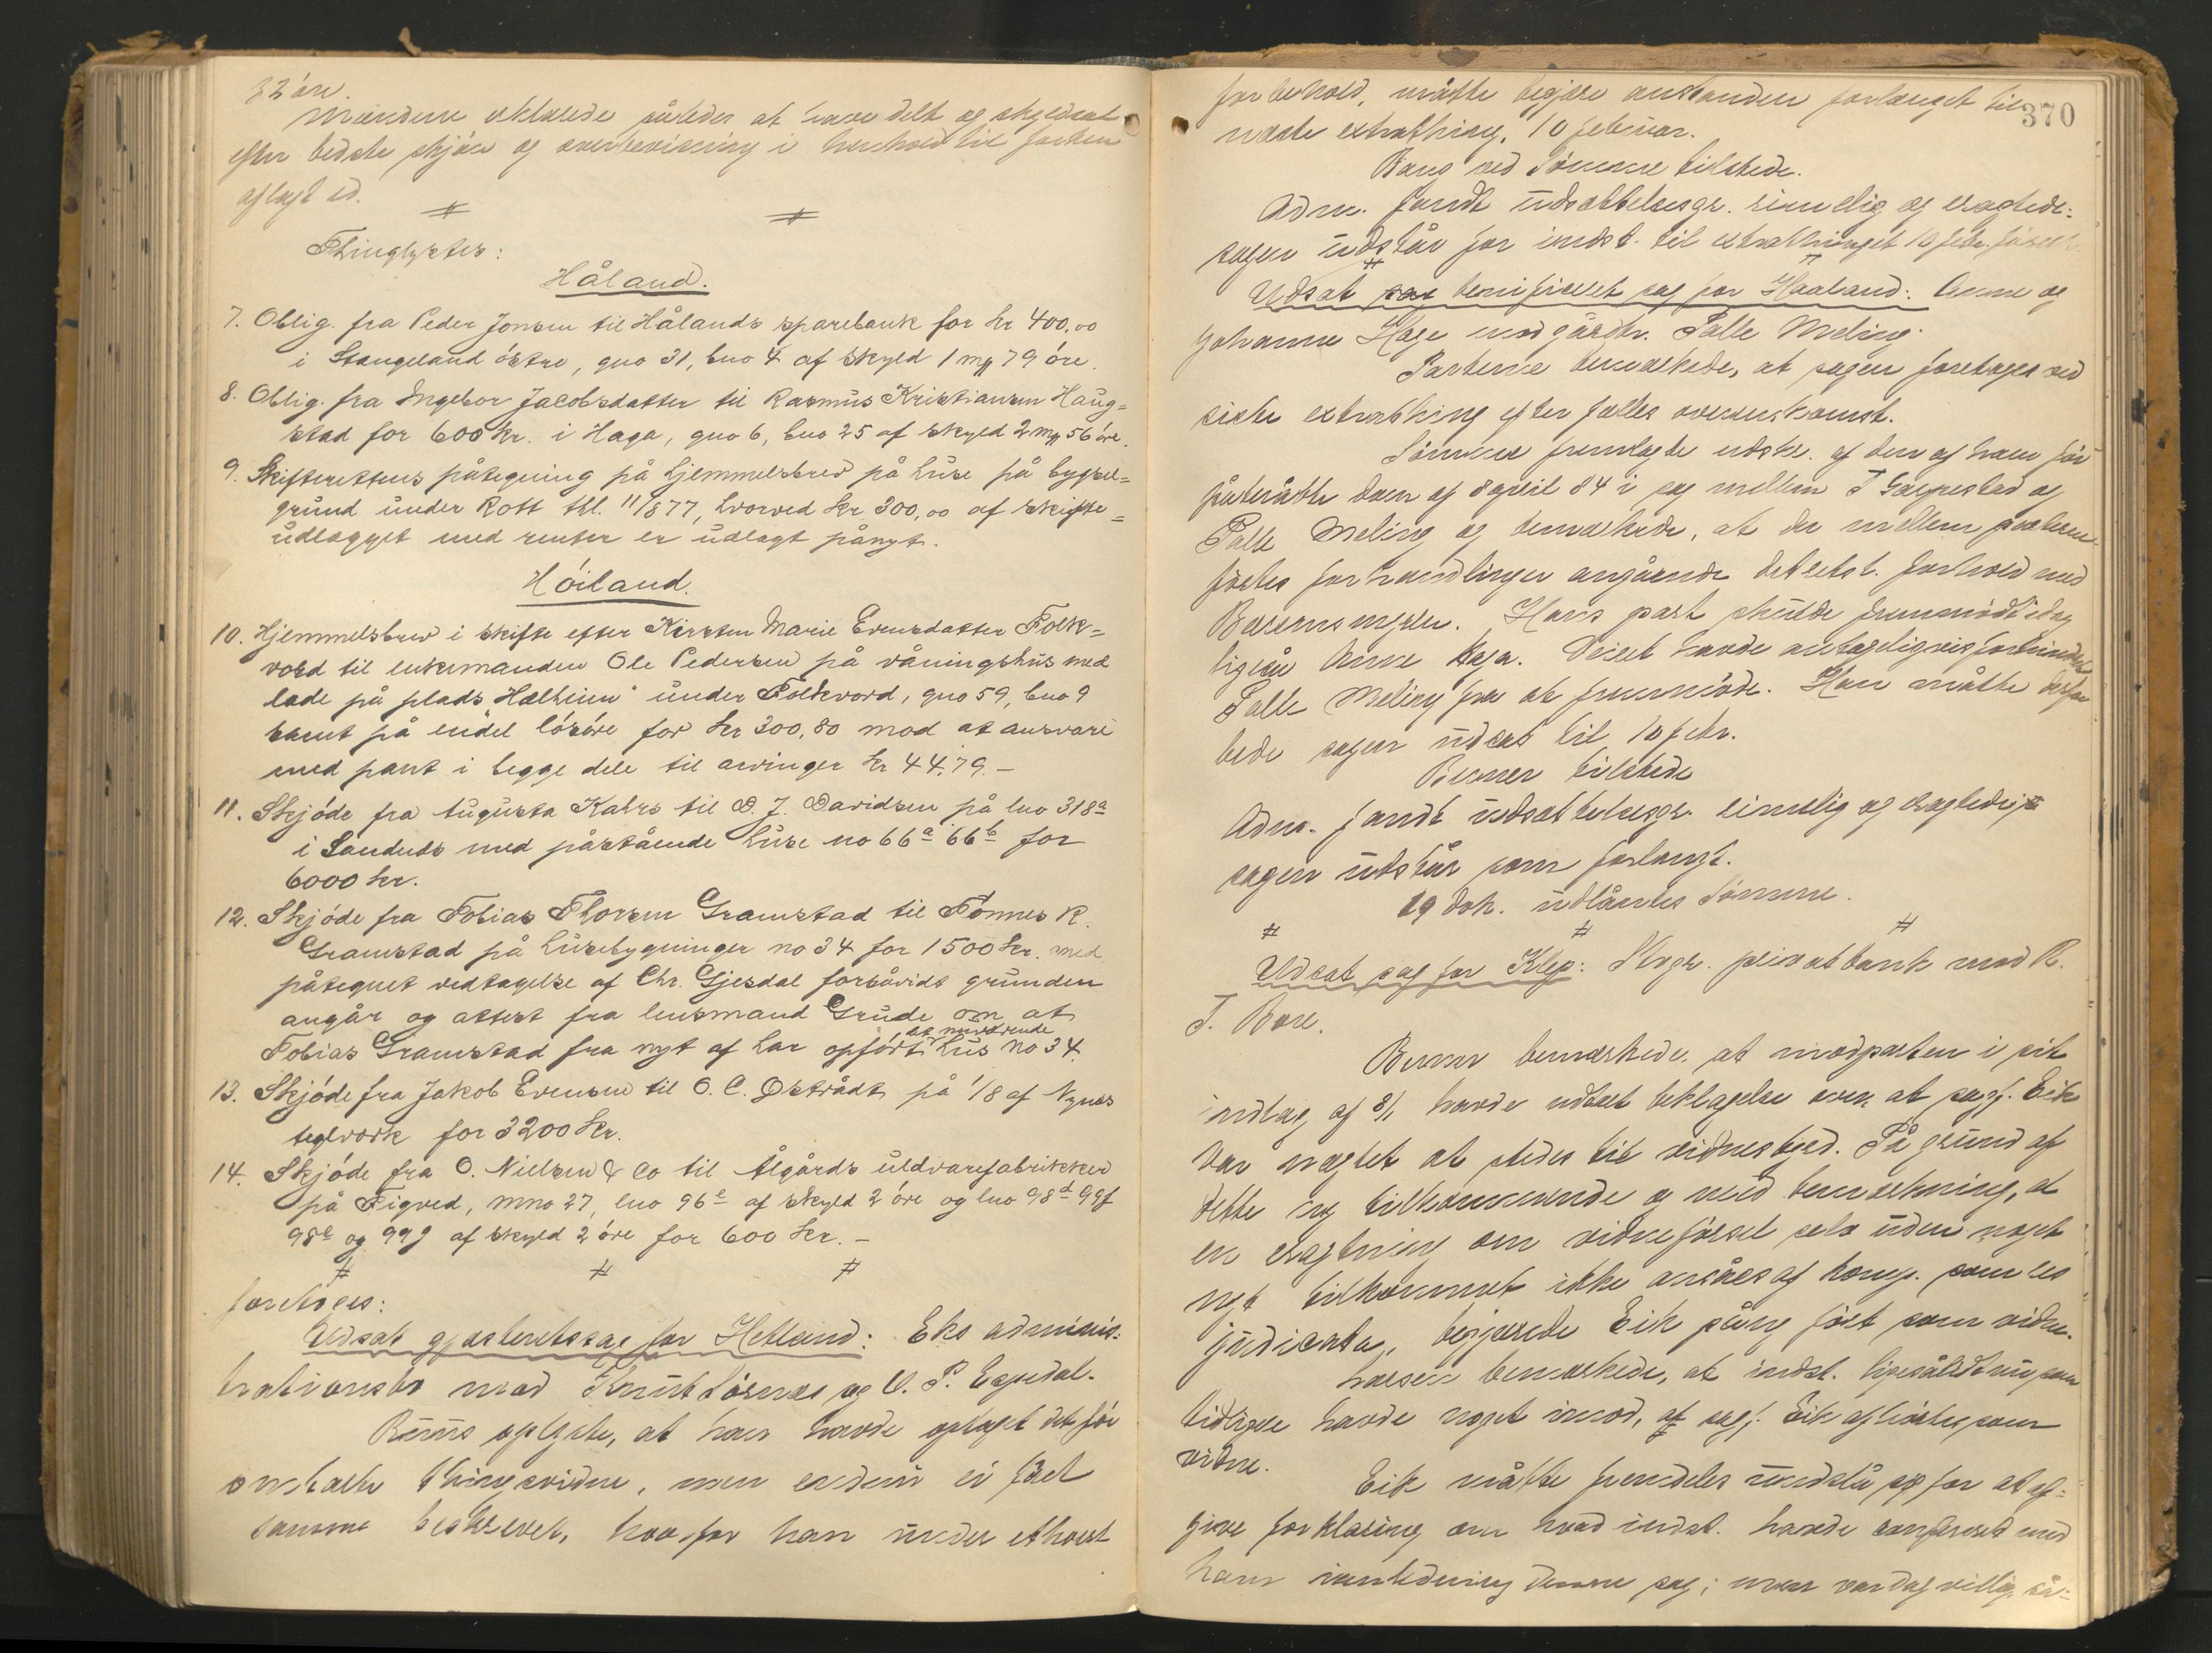 32 öre.
Mændene erklærede således at have delt og skyldsat
efter bedste skjön og overbevisning i henhold til forhen
aflagt ed.
Thinglyster:
Håland.
7. Oblig. fra Peder Jonsen til Hålands sparebank for kr 400,00
i Stangeland östre, gno 31, bno 4 af skyld 1 mk 79 öre.
8. Oblig. fra Ingebor Jacobsdatter til Rasmus Kristiansen Haug=
stad for 600 kr. i Haga, gno 6, bno 25 af skyld 2 mk 56 öre.
9. Skifterettens påtegning på hjemmelsbrev på huse på bygsel=
grund under Rott thl. 11/8 77, hvorved kr 300,00 af skifte=
udlægget med renter er udlagt pånyt.
Höiland.
10. Hjemmelsbrev i skifte efter Kirsten Marie Evensdatter Folk=
vord til enkemanden Ole Pedersen på våningshus med
lade på plads "Hælheim" under Folkvord, gno 59, bno 9
samt på endel lösöre for kr 300,80 mod at ansvare
med pant i begge dele til arvinger kr 44,79.-
11. Skjöde fra Augusta Kahrs til D. J. Davidsen på lno 318a
i Sandnes med påstående huse no 66a 66b for
6000 kr.
12. Skjöde fra Tobias Thorsen Gramstad til Tönnes R.
Gramstad på husebygninger no 34 for 1500 kr. med
påtegnet vedtagelse af Chr. Gjesdal forsåvidt grunden
angår og attest fra lensmand Grude om at
Tobias Gramstad fra nyt af har opfört det nuværende hus no 34.
13. Skjöde fra Jakob Evensen til O. C. Östrådt på 1/8 af Nynæs
teglværk for 3200 kr.
14. Skjöde fra O. Nielsen & Co til Ålgårds uldvarefabrikker
på Figved, mno 27, lno 96e af skyld 2 öre og lno 98d 99f
98e og 99g af skyld 2 öre for 600 kr.-
foretoges:
Udsat gjæsteretssag for Hetland: Eks adminis-
trationsbo mod Knut Sörnæs og O. P. Espedal.
oplyste, at han havde optaget det för
omtalte thingsvidne, men endnu ei fået
samme beskrevet, hvorfor han under ethvert
370
forbehold, måtte begjære anstanden forlænget til
næste extrathing, 10 februar.
Bang ved Sömme tilstede.
Adm. fandt udsættelsesgr. rimelig og eragtede:
sagen udstår for indst. til extrathinget 10 febr. först.
Udsat benificeret sag for Haaland: Anne og
Johanne Hage mod gårdbr. Palle Meling.
Parterne bemærkede, at sagen foretages ved
sidste extrathing efter fælles overenskomst.
Sömme fremlagte udskr. af den af ham för
påberåbte dom af 8 april 84 i sag mellem T Gaupestad og
Palle Meling og bemærkede, at der mellem parterne
förtes forhandlinger angående det retsl. forhold med
Hans part skulde fremmödt idag
ligeså Anne Haga. Veiret havde antageligvis forhindret
Palle Meling fra at fremmöde. Han måtte derfor
bede sagen udsat til 10 febr.
Berner tilstede
Adm. fandt udsættelsesgr. rimelig og eragtede:
sagen udstår som forlangt.
19 dok. udlåntes Sömme.
Udsat sag for Klep: Stvgr. privatbank mod R.
T. Bore.
Berner bemærkede at modparten i sit
indlæg af 8/1 havde udtalt beklagelse over, at sagf. Eik
var nægtet at stedes til vidnesbyrd. På grund af
dette ny tilkommende og med bemærkning, at
en eragtning om vidneförsel selv uden noget
nyt tilkommet ikke ansåes af komp. som res
judicata, begjærede Eik påny fört som vidne.
Larsen bemærkede, at indst. ligesålidt nu som
tidligere havde noget imod, at sagf. Eik afhörtes som
vidne.
Eik måtte fremdeles undslå sig for at af=
give forklaring om hvad indst. havde confereret med
ham i anledning denne sag; men var dog villig så=